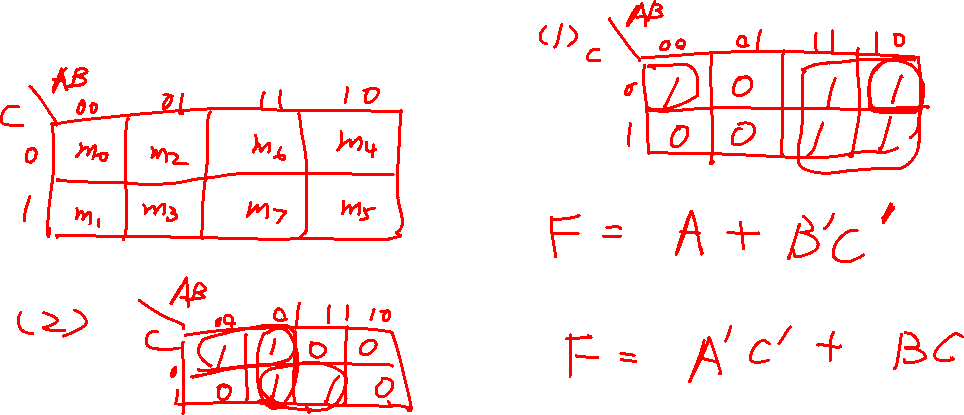 AB
C 00 01 11 10
0 m0 m2 m6 m4
1 m1 m3 m7 m5
(1) AB
C 00 01 11 10
0 1 0 1 1
1 0 0 1 1
F = A + B'C'
(2) AB
C 00 01 11 10
0 1 1 0 0
1 0 1 1 0
F = A'C' + BC